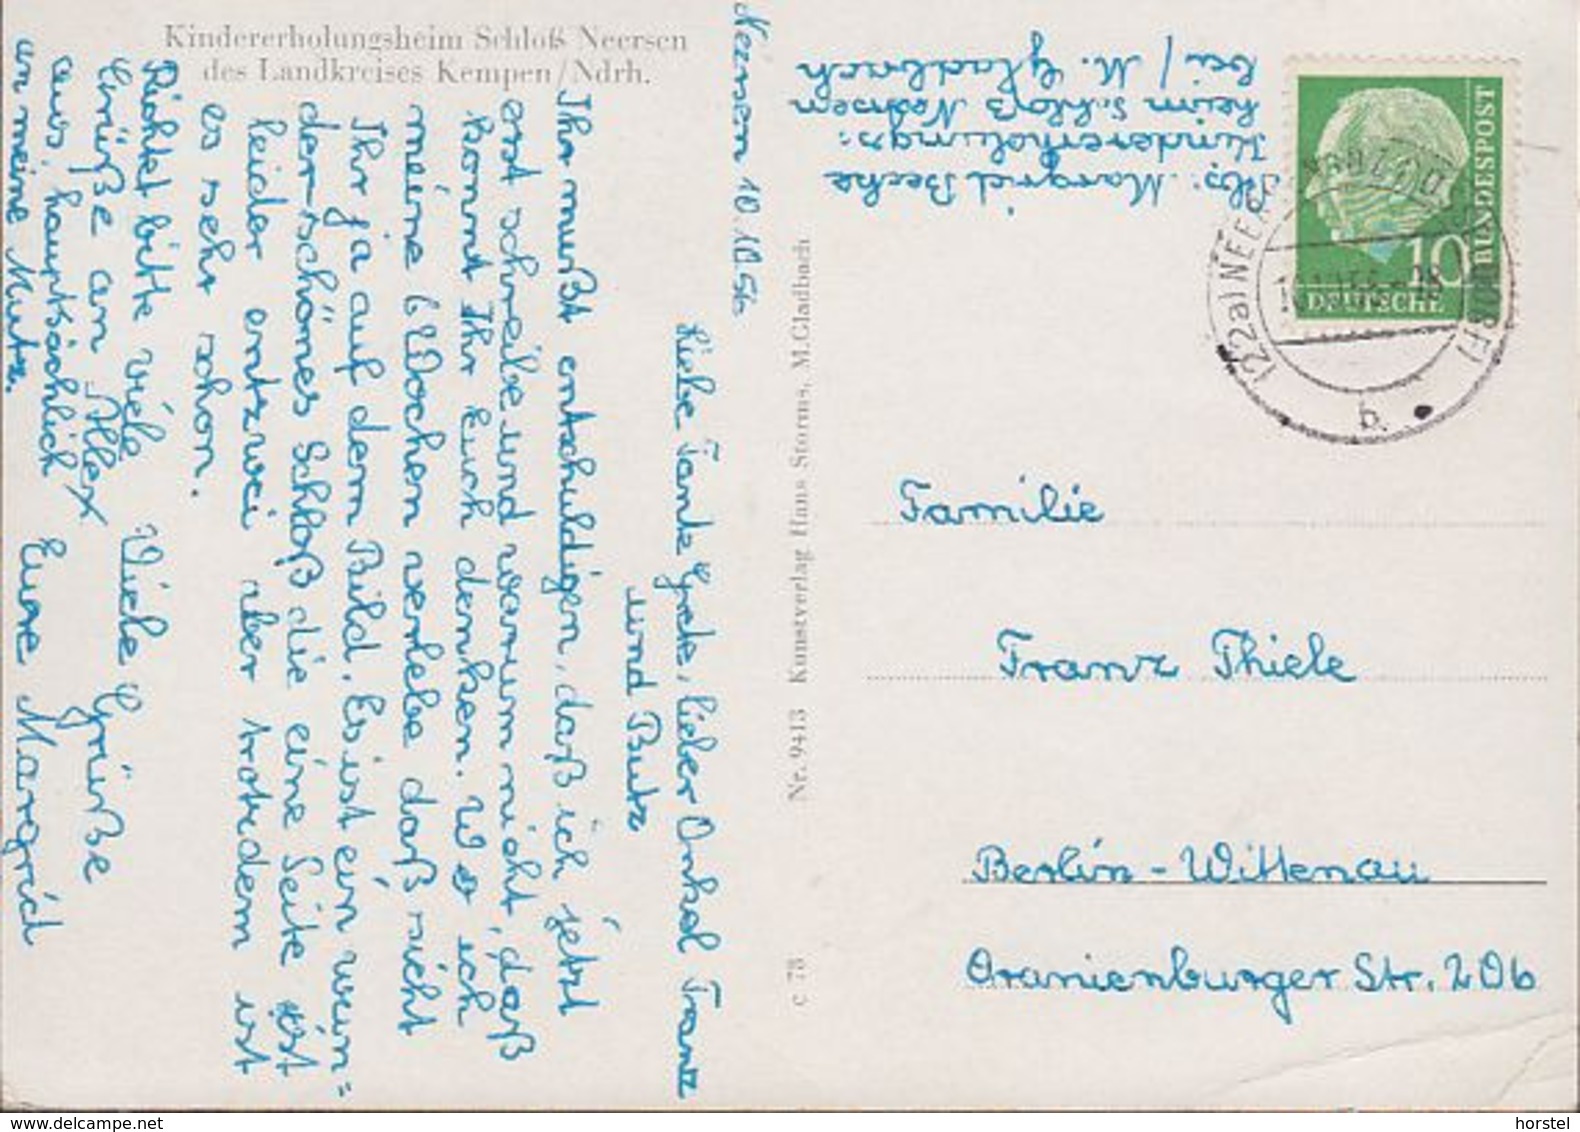 Kindererholungsheim Schloß Neersen
des Landkreises Kempen/Ndrh.
Neersen 10.10.56
Liebe Tante Grete, lieber Onkel Frantz
und Butz
Ihr mußt entschuldigen, daß ich jetzt
erst schreibe und warum nicht, daß
könnt Ihr Euch denken. Wo ich
meine 6 Wochen verlebe daß sicht
Ihr ja auf dem Bild. Es ist ein wun=
der-schönes Schloß die eine Seite ist
leider entzwei aber trotzdem ist
es sehr schon.
Richtet bitte viele
Grüße an Allex
aus, hauptsächlich
an meine Mutz.
Viele Grüße
Eure Margrid
Nr. 9413 Kunstverlag Hans Storms, M.Gladbach
c 75
Abs. Margrid Beche
Kindererholungs=
heim Schloß Neersen
bei / M. Gladbach
DEUTSCHE
BUNDESPOST
10
(22a) NEER
b
Familie
Franz Thiele
Berlin - Wittenau
Oranienburger Str. 206
www.delcampe.net
horstel